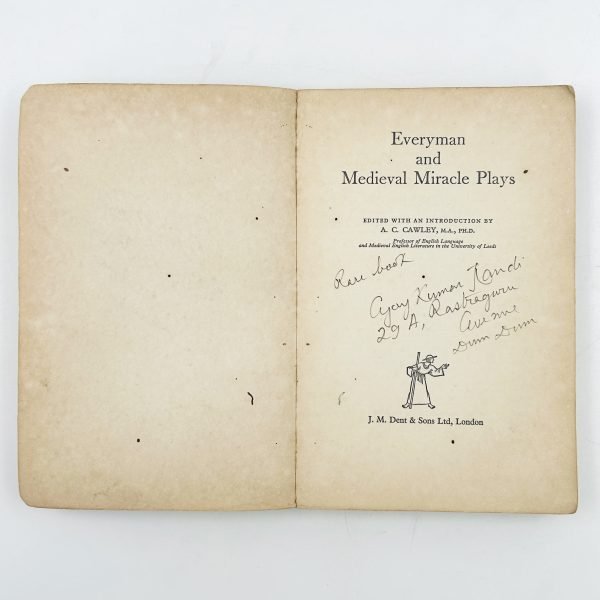 Everyman
and
Medieval Miracle Plays
EDITED WITH AN INTRODUCTION BY
A. C. CAWLEY, M.A., PH.D.
Professor of English Language
and Medieval English Literature in the University of Leeds
Rare book
Ajay Kumar
29 A, Rastraguru
Avenue
Dum Dum
J. M. Dent & Sons Ltd, London